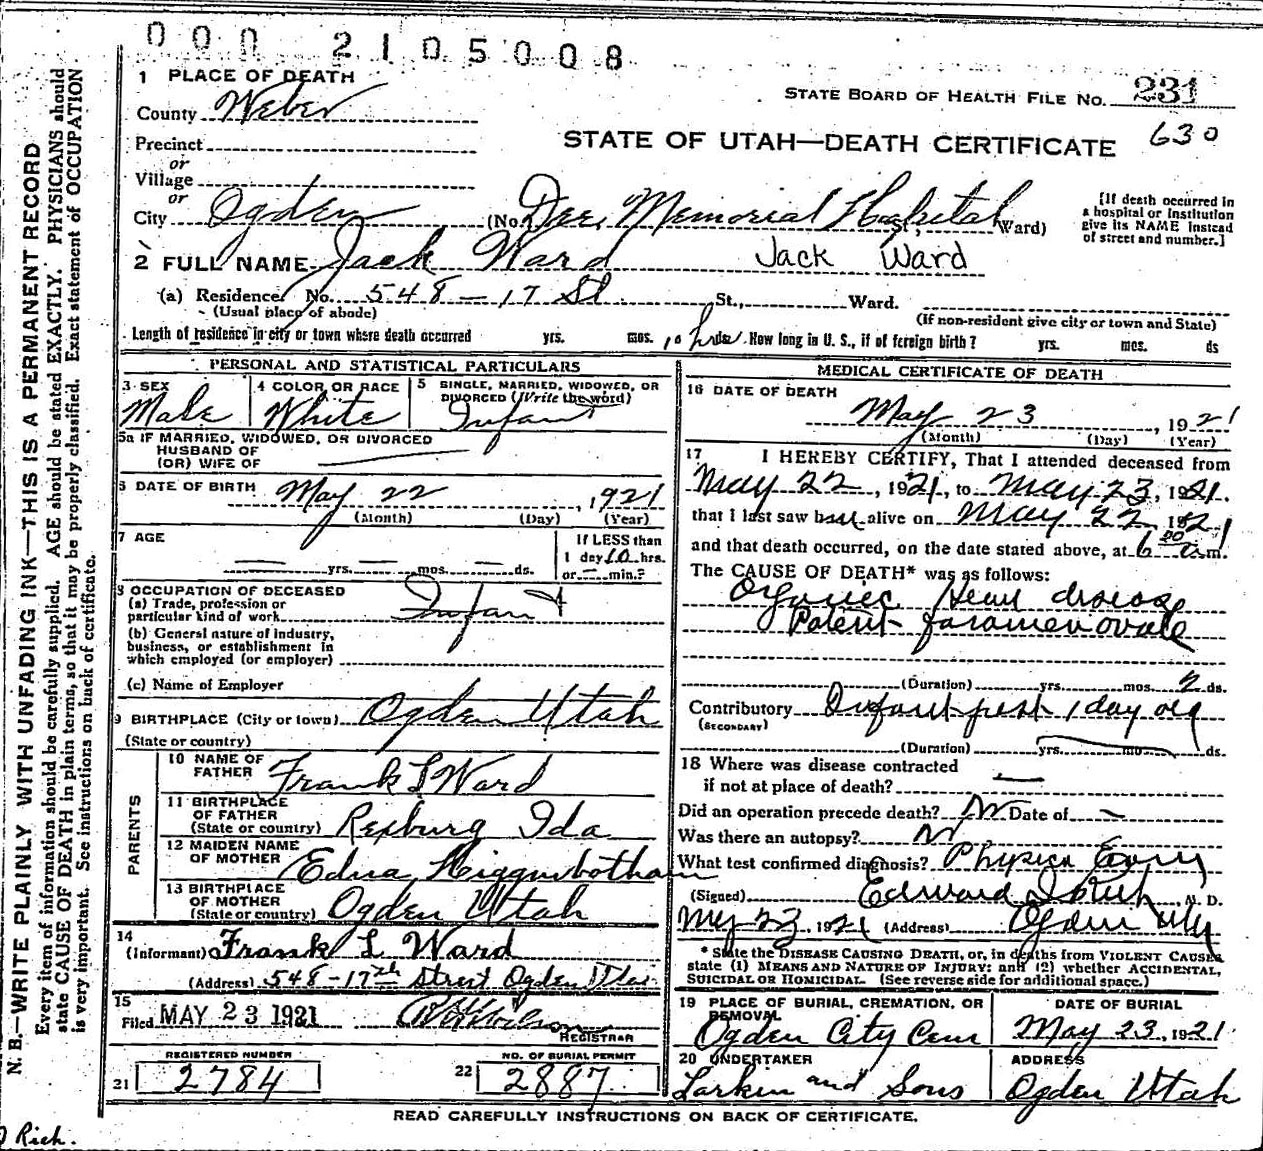 000 2105008
1 PLACE OF DEATH
STATE BOARD OF HEALTH FILE No. 231
County Weber
STATE OF UTAH—DEATH CERTIFICATE 630
Precinct
or
Village
or
City Ogden (No. Dee Memorial Hospital St., Ward)
[If death occurred in
a hospital or institution
give its NAME instead
of street and number.]
2 FULL NAME Jack Ward Jack Ward
(a) Residence No. 548-17 St St., Ward.
(Usual place of abode) (If non-resident give city or town and State)
Length of residence in city or town where death occurred yrs. mos. 10 hrs How long in U. S., if of foreign birth? yrs. mos. ds
PERSONAL AND STATISTICAL PARTICULARS
3 SEX
Male
4 COLOR OR RACE
White
5 SINGLE, MARRIED, WIDOWED, OR
DIVORCED (Write the word)
Infant
5a IF MARRIED, WIDOWED, OR DIVORCED
HUSBAND OF
(OR) WIFE OF
6 DATE OF BIRTH May 22, 1921
(Month) (Day) (Year)
7 AGE
— yrs. — mos. — ds.
If LESS than
1 day 10 hrs.
or — min.?
8 OCCUPATION OF DECEASED
(a) Trade, profession or
particular kind of work Infant
(b) General nature of industry,
business, or establishment in
which employed (or employer)
(c) Name of Employer
9 BIRTHPLACE (City or town) Ogden Utah
(State or country)
PARENTS
10 NAME OF
FATHER Frank L Ward
11 BIRTHPLACE
OF FATHER
(State or country) Rexburg Ida
12 MAIDEN NAME
OF MOTHER Edna Higginbotham
13 BIRTHPLACE
OF MOTHER
(State or country) Ogden Utah
14
(Informant) Frank L. Ward
(Address) 548-17th Street Ogden Utah
15
Filed MAY 23 1921
REGISTRAR
REGISTERED NUMBER
21 2784
NO. OF BURIAL PERMIT
22 2887
MEDICAL CERTIFICATE OF DEATH
16 DATE OF DEATH
May 23, 1921
(Month) (Day) (Year)
17 I HEREBY CERTIFY, That I attended deceased from
May 22, 1921, to May 23, 1921.
that I last saw h alive on May 22, 1921
and that death occurred, on the date stated above, at 6 00 a m.
The CAUSE OF DEATH* was as follows:
Organic Heart disease
Patent foramen ovale
(Duration) yrs. mos. 2 ds.
Contributory Infant 1 day old
(SECONDARY)
(Duration) yrs. mos. ds.
18 Where was disease contracted
if not at place of death? —
Did an operation precede death? No Date of —
Was there an autopsy? No
What test confirmed diagnosis? Physical Exam
(Signed) Edward I Rich, M. D.
May 23, 1921 (Address) Ogden Utah
* State the DISEASE CAUSING DEATH, or, in deaths from VIOLENT CAUSES
state (1) MEANS AND NATURE OF INJURY; and (2) whether ACCIDENTAL,
SUICIDAL OR HOMICIDAL. (See reverse side for additional space.)
19 PLACE OF BURIAL, CREMATION, OR
REMOVAL
Ogden City Cem
DATE OF BURIAL
May 23, 1921
20 UNDERTAKER
Larkin and Sons
ADDRESS
Ogden Utah
READ CAREFULLY INSTRUCTIONS ON BACK OF CERTIFICATE.
N. B.—WRITE PLAINLY WITH UNFADING INK—THIS IS A PERMANENT RECORD
Every item of information should be carefully supplied. AGE should be stated EXACTLY. PHYSICIANS should
state CAUSE OF DEATH in plain terms, so that it may be properly classified. Exact statement of OCCUPATION
is very important. See instructions on back of certificate.
Rich.